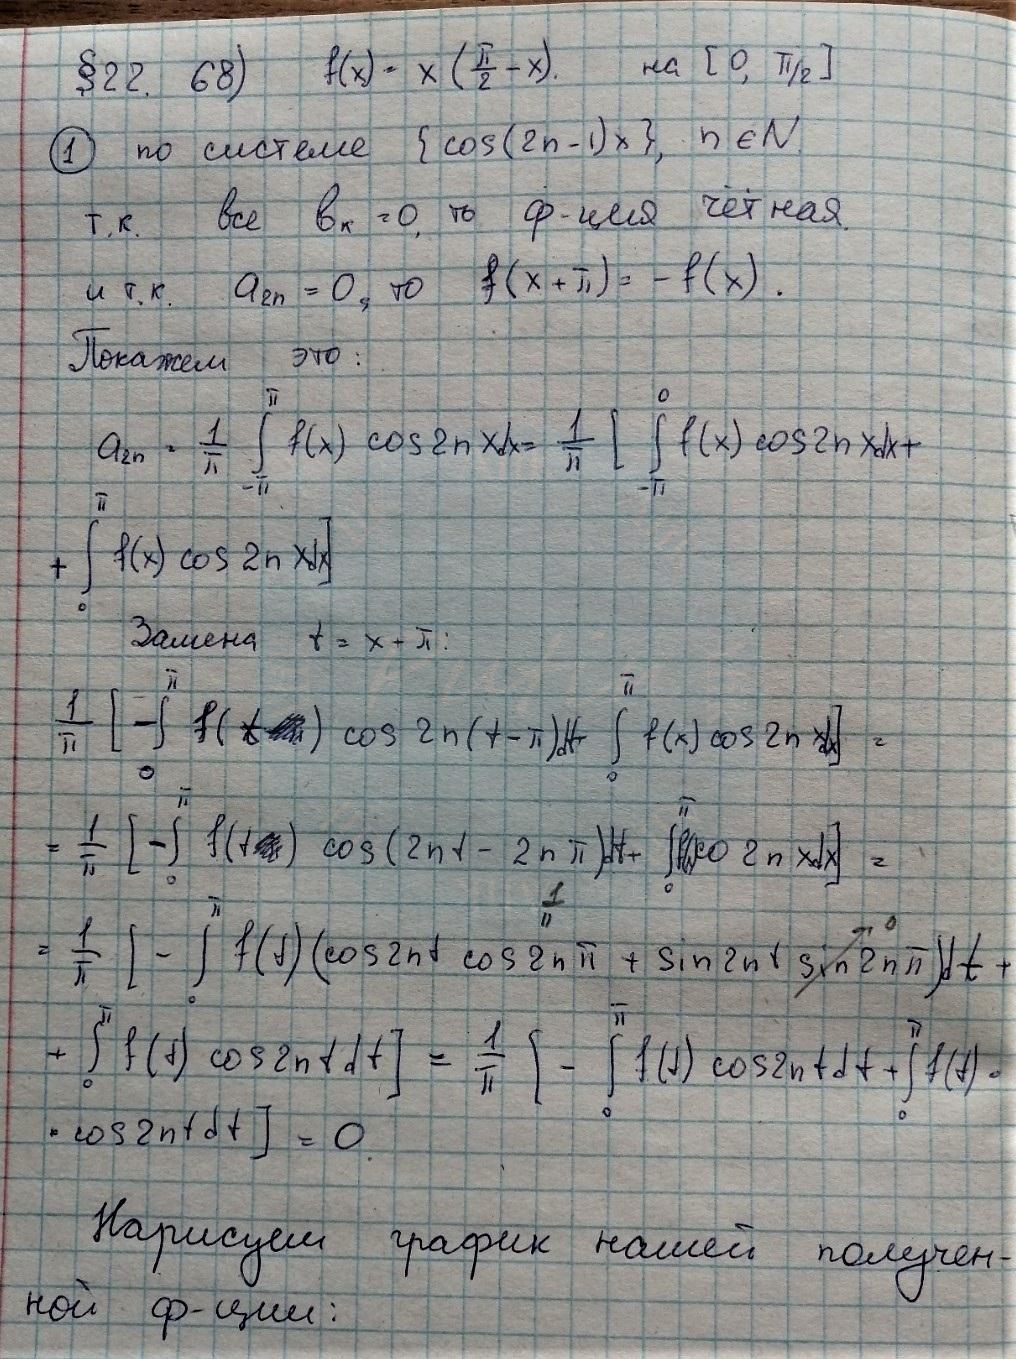 §22. 68) f(x) = x (π/2 - x). на [0, π/2]
① по системе {cos(2n-1)x}, n ∈ N.
т.к. все bₖ = 0, то ф-ция чётная.
и т.к. a₂ₙ = 0, то f(x+π) = -f(x).
Покажем это:
a₂ₙ = 1/π ∫_{-π}^{π} f(x) cos2nxdx = 1/π [ ∫_{-π}^{0} f(x) cos2nxdx +
+ ∫_0^π f(x) cos 2n xdx]
Замена t = x + π:
1/π [ -∫_0^π f(t) cos 2n(t-π)dt + ∫_0^π f(x) cos 2n xdx] =
= 1/π [ -∫_0^π f(t) cos(2nt - 2nπ)dt + ∫_0^π f(x)co 2n xdx] =
= 1/π [ - ∫_0^π f(t) (cos2nt cos2nπ + sin2nt sin2nπ)dt +
+ ∫_0^π f(t) cos2nt dt] = 1/π [ - ∫_0^π f(t) cos2nt dt + ∫_0^π f(t) ·
· cos2nt dt ] = 0.
Нарисуем график нашей получен-
ной ф-ции: